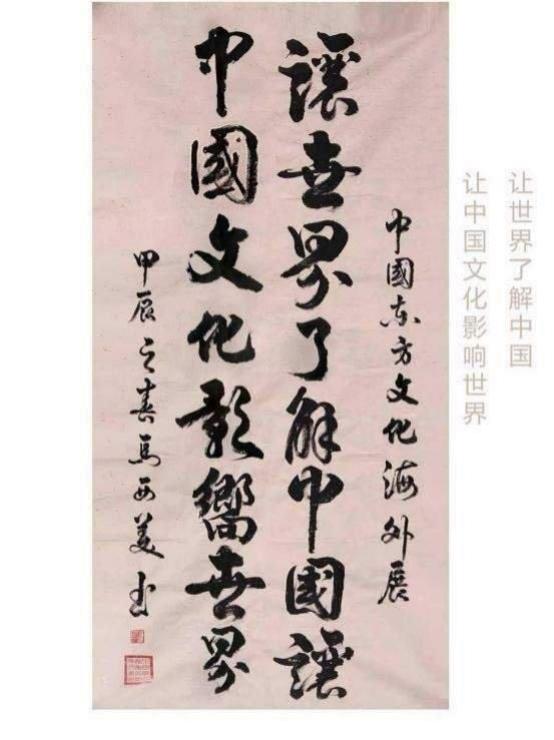 让世界了解中国
让中国文化影响世界
中國东方文化海外展
讓世界了解中國讓
中國文化影嚮世界
甲辰之春马西美书